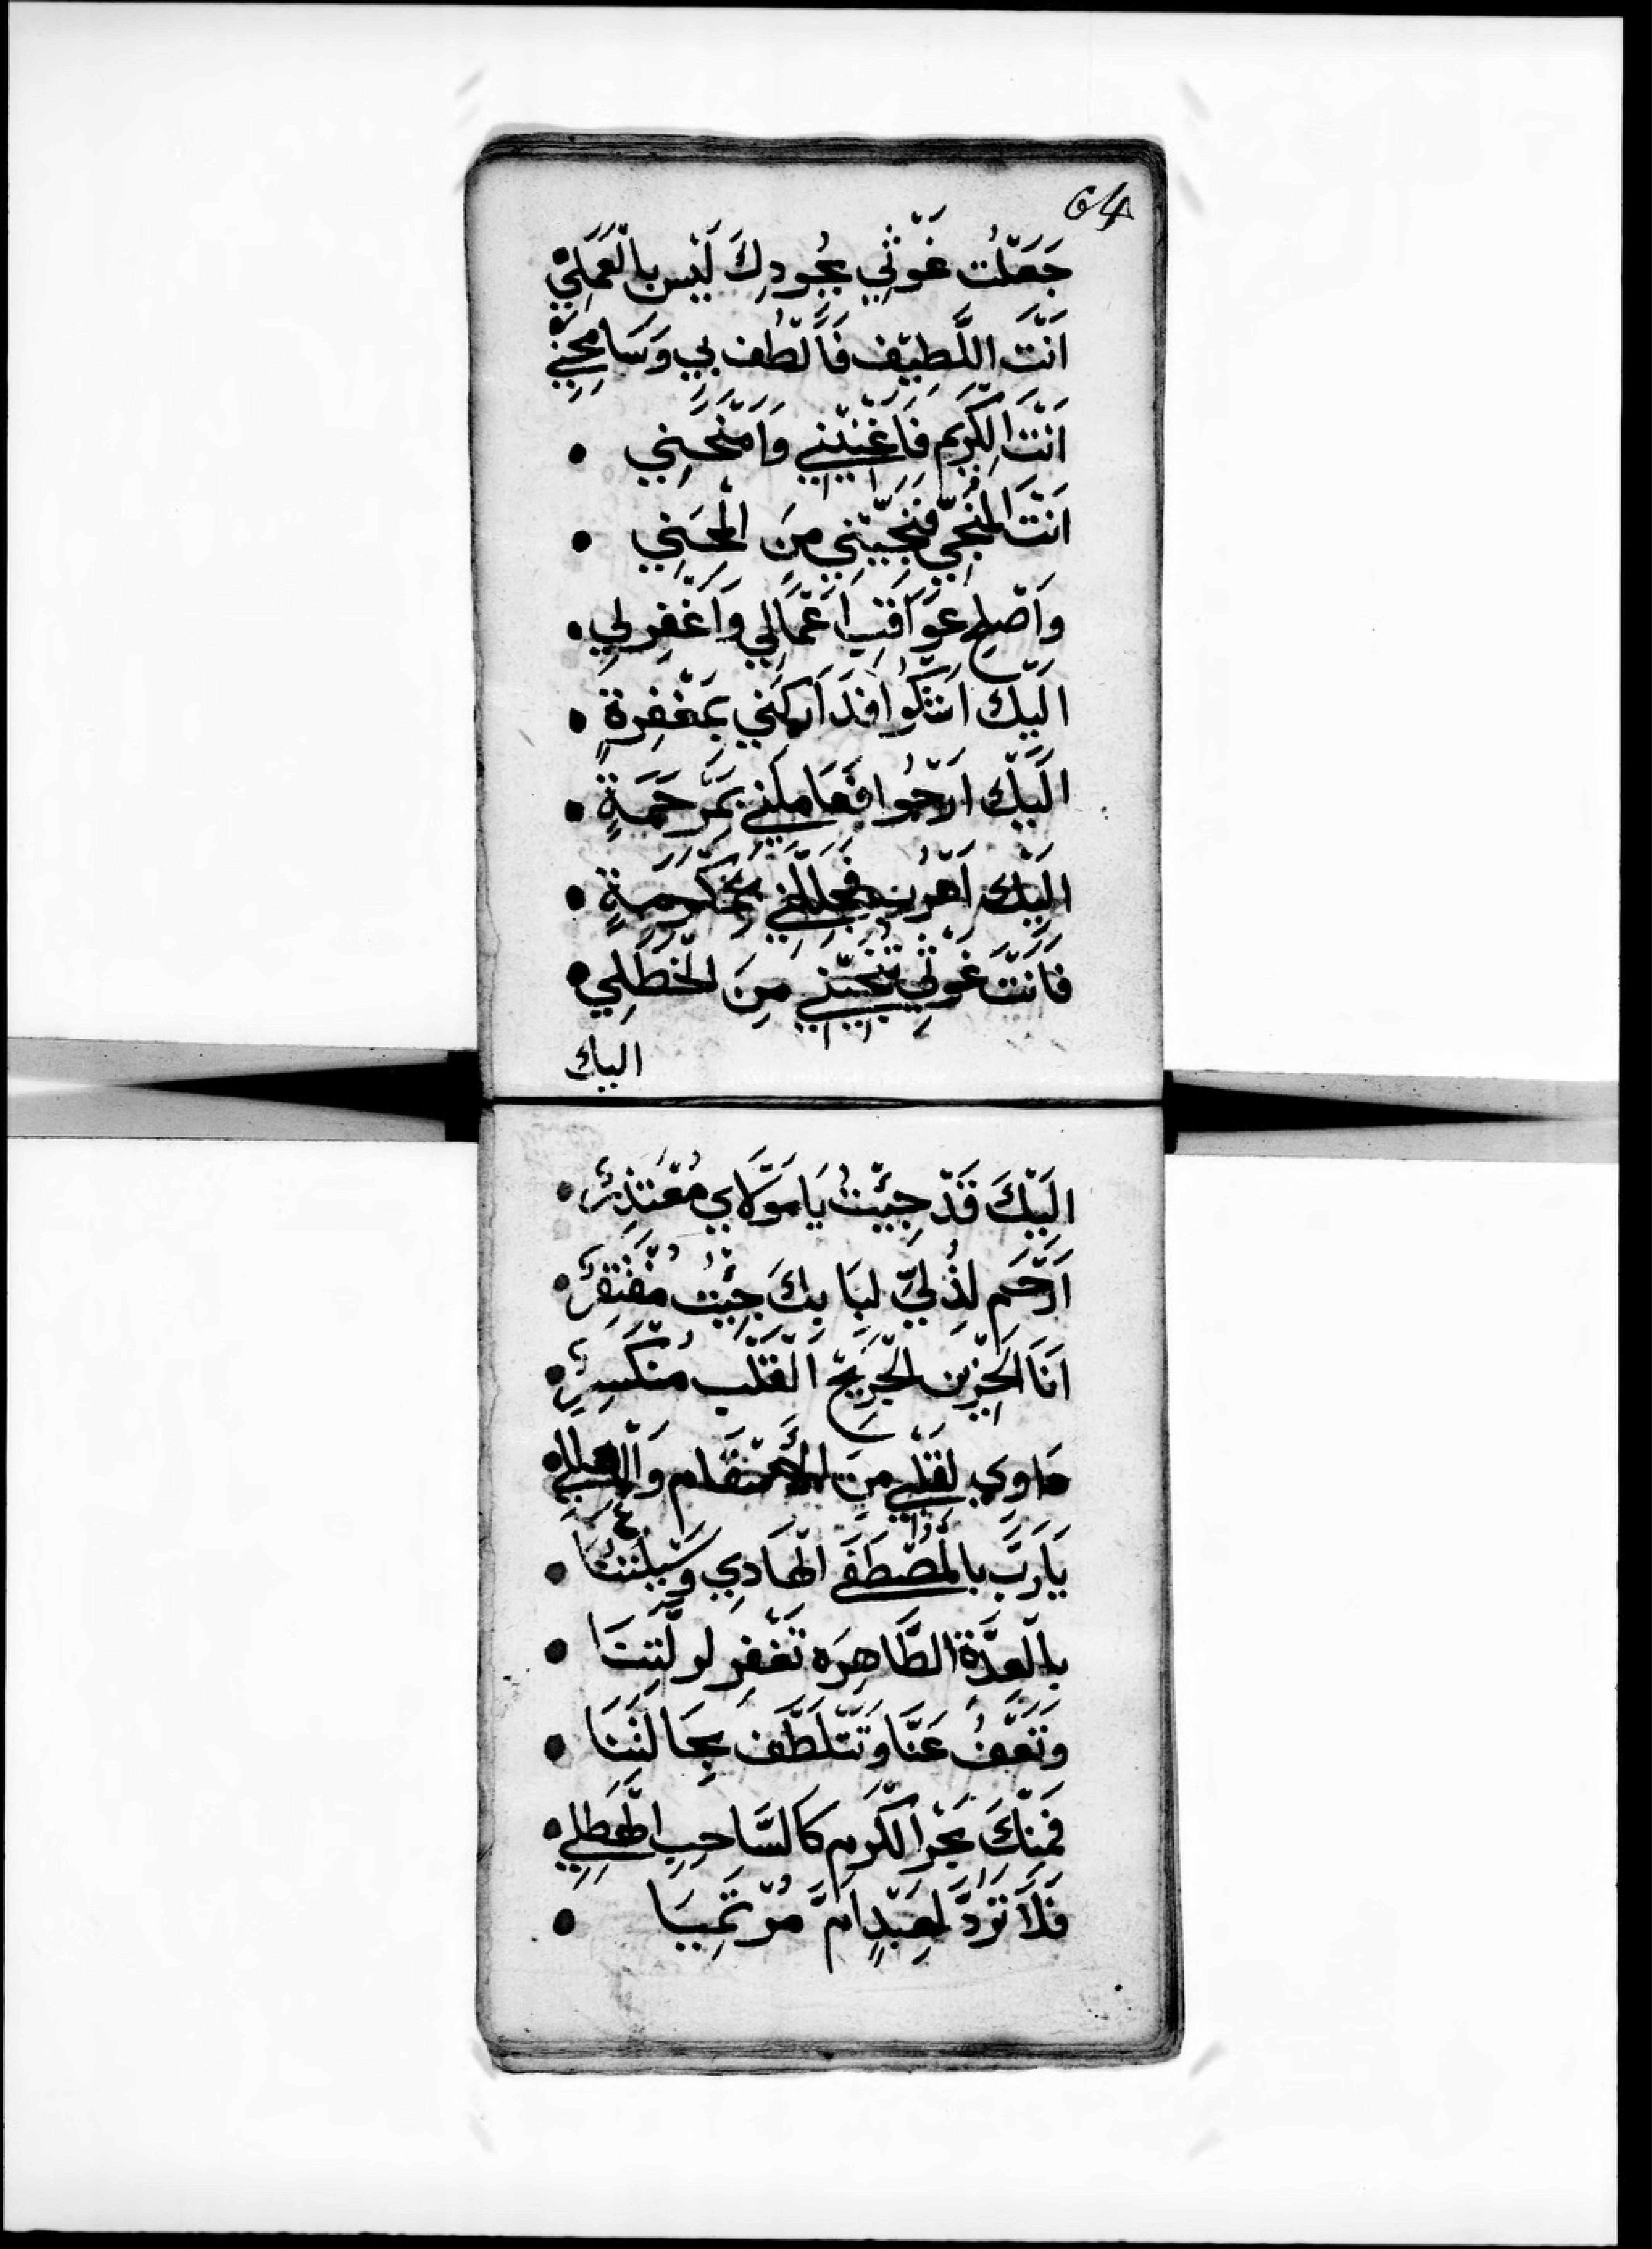 64
جَعَلْتُ غَوْثِي بِجُودِكَ لَيْسَ بِالْعَمَلِيّ
اَنْتَ اللَّطِيْف فَالْطُف بِي وَسَامِحْنِي
اَنْتَ الْكَرِيم فَاغْنِنِي وَامْنَحْنِي
اَنْتَ الْمُنْجِي فَنَجِّيْنِي مِنَ الْمِحَنِي
وَاَصْلِح عَوَاقِب اَعْمَالِي وَاغْفِر لِي
اِلَيْك اَشْكُوا فَدَارِكْنِي بِمَغْفِرَةٍ
اِلَيْك اَرْجُوا فَعَامِلْنِي بِمَرْحَمَةٍ
اِلَيْك اَهْرُب فَجَلِّلْنِي بِمَكْرُمَةٍ
فَاَنْتَ غَوْثِي تُنَجِّيْنِي مِنَ الْخَطَلِي
اليك
اِلَيْكَ قَدْ جِئْتُ يَا مَوْلَاي مُعْتَذِرٌ
اَرْحَم لِذُلِّي لِبَابِكَ جِئْتُ مُفْتَقِرٌ
اَنَا الْحَزِيْن الْجَرِيْح الْقَلْب مُنْكَسِرٌ
دَاوِي لِقَلْبِي مِنَ الْأَسْقَام وَالْعِلَلِي
يَارَبّ بِالْمُصْطَفَى الْهَادِي وَسِيْلَتُنَا
بِالْعِدَّة الطَّاهِرَه تَغْفِر لِزَلَّتِنَا
وَتَعْفُ عَنَّا وَتَتَلَطَّف بِحَالَتِنَا
فَمِنْكَ بَحْر الْكَرَم كَالسَّاحِبِ الْهَطِلِي
فَلَا تَرُدّ لِعَبْدٍ اَمَّ مُرْتَمِيَا